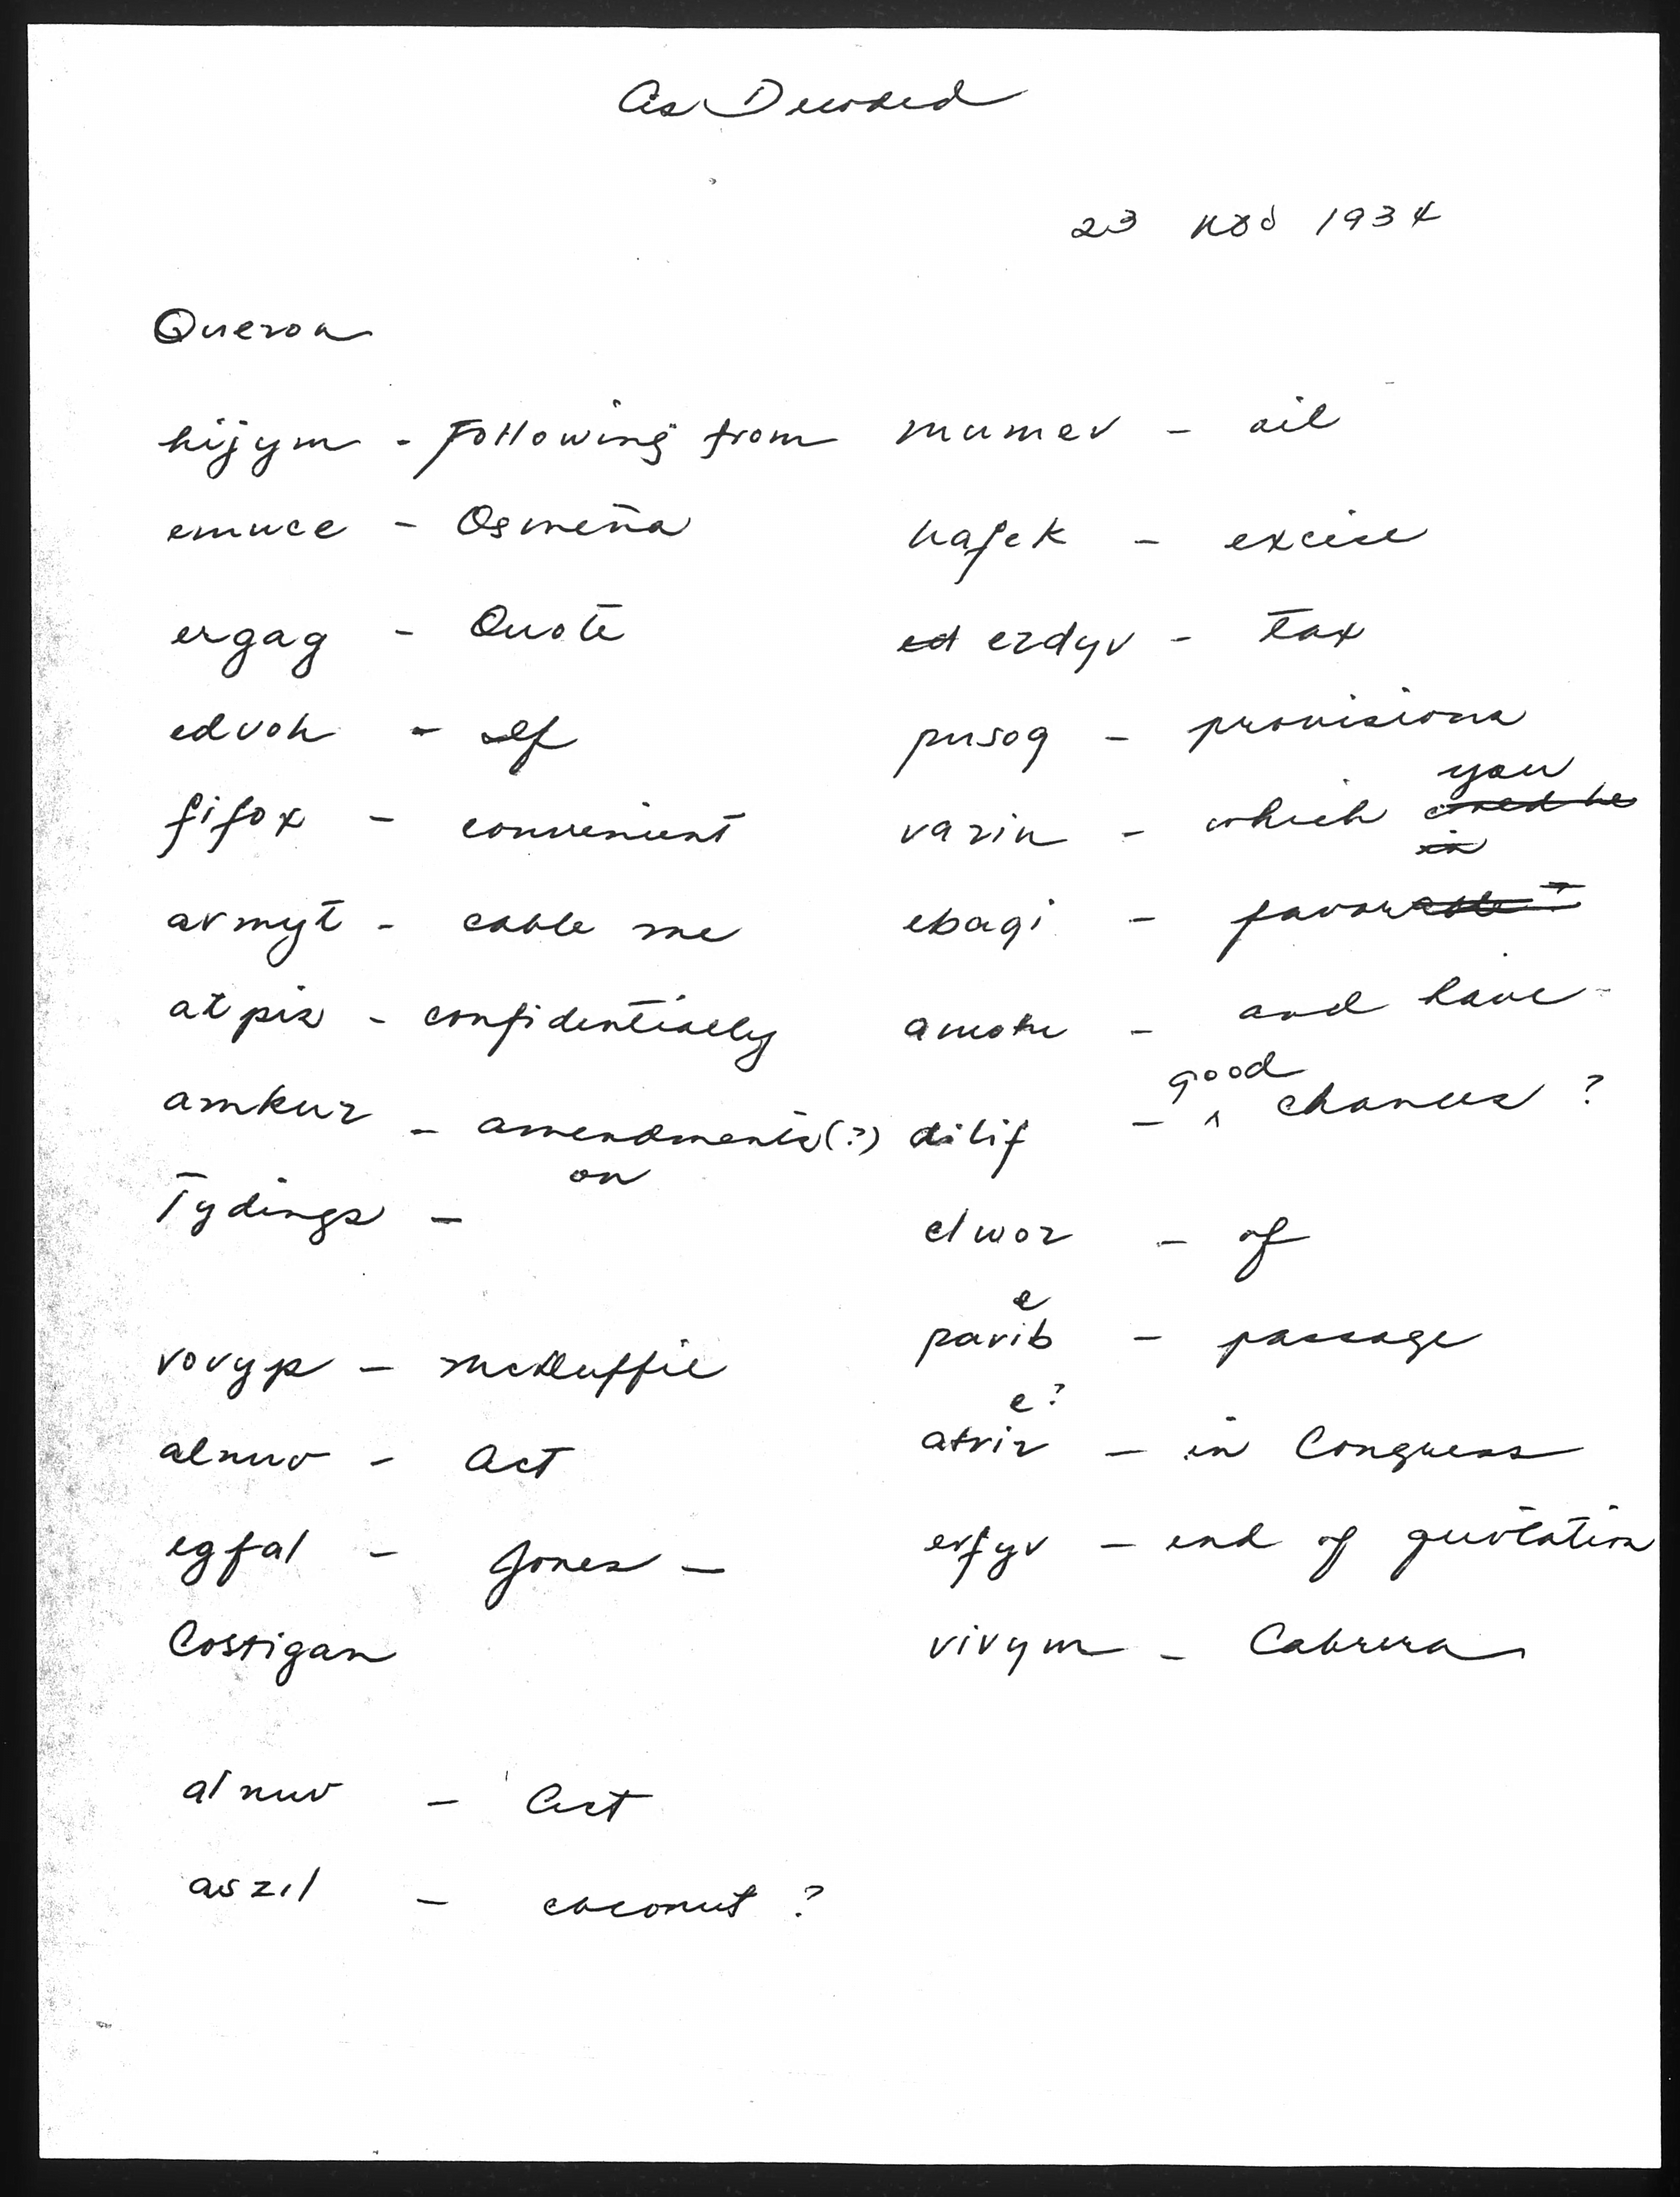 As Decoded
23 Nov 1934
Quezon
hijym - Following from
emuce - Osmeña
ergag - Quote
edvoh - If
fifox - convenient
avmyt - cable me
atpis - confidentially
amkuz - amendments(?)
on
Tydings -
vovyp - McDuffie
alnuv - Act
egfal - Jones -
Costigan
alnuv - Act
aszil - coconut ?
mumev - oil
hafek - excise
ed erdyv - tax
pusog - provisions
you
varin - which
ebagi - favorable
amohu - and have
good
dilif - ^ chances ?
elwoz - of
e
pavib - passage
e?
atviz - in Congress
evfyv - end of quotation
vivym - Cabrera